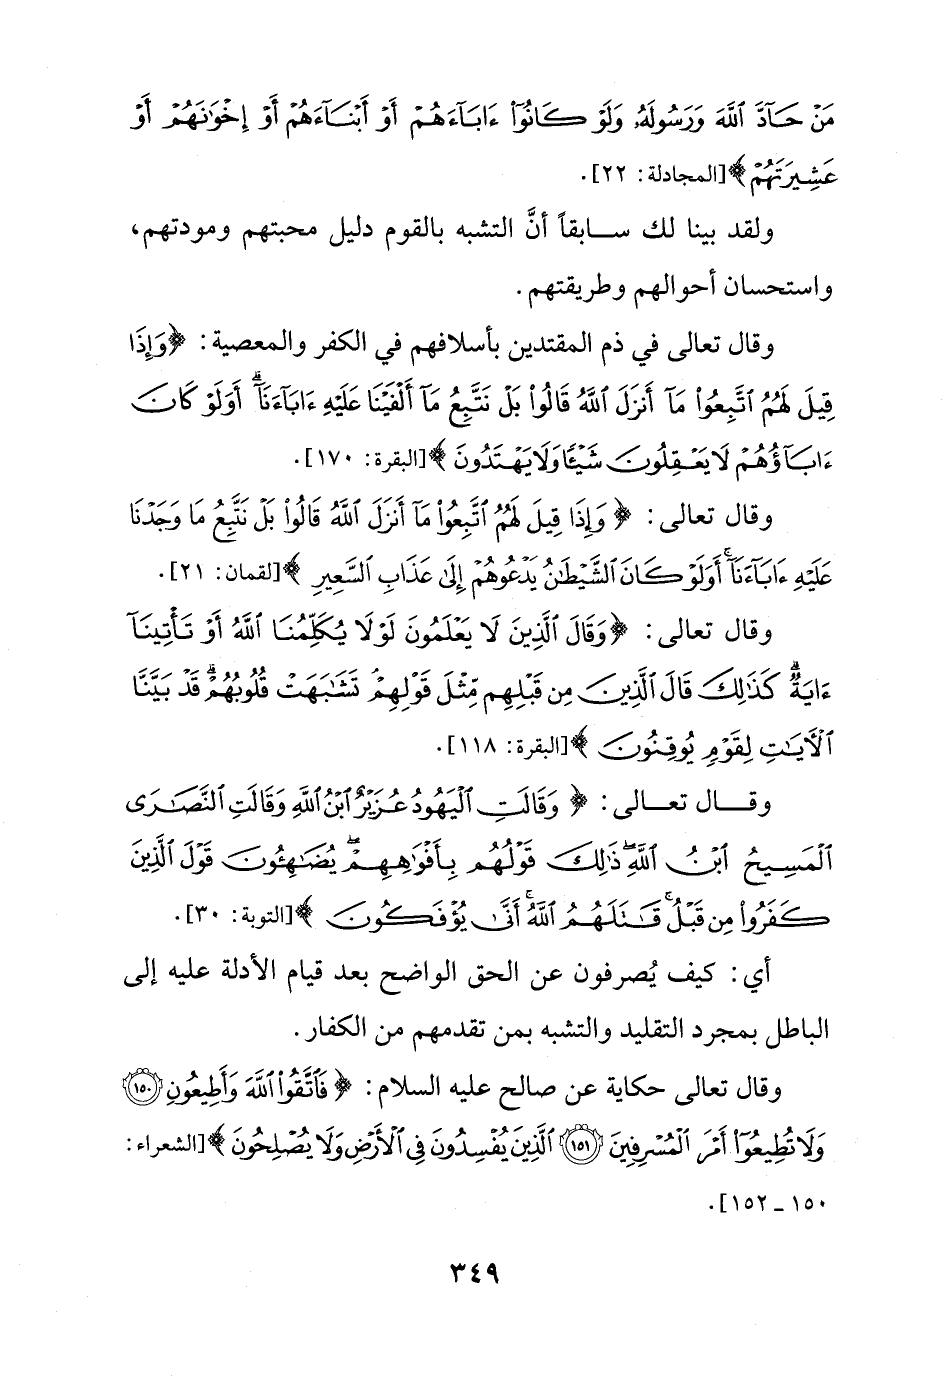 مَنۡ حَآدَّ ٱللَّهَ وَرَسُولَهُۥ وَلَوۡ كَانُوٓاْ ءَابَآءَهُمۡ أَوۡ أَبۡنَآءَهُمۡ أَوۡ إِخۡوَٰنَهُمۡ أَوۡ
عَشِيرَتَهُمۡ ﴾ [المجادلة: ٢٢].
ولقد بينا لك سابقاً أنَّ التشبه بالقوم دليل محبتهم ومودتهم،
واستحسان أحوالهم وطريقتهم.
وقال تعالى في ذم المقتدين بأسلافهم في الكفر والمعصية: ﴿ وَإِذَا
قِيلَ لَهُمُ ٱتَّبِعُواْ مَآ أَنزَلَ ٱللَّهُ قَالُواْ بَلۡ نَتَّبِعُ مَآ أَلۡفَيۡنَا عَلَيۡهِ ءَابَآءَنَآۗ أَوَلَوۡ كَانَ
ءَابَآؤُهُمۡ لَا يَعۡقِلُونَ شَيۡـًٔا وَلَا يَهۡتَدُونَ ﴾ [البقرة: ١٧٠].
وقال تعالى: ﴿ وَإِذَا قِيلَ لَهُمُ ٱتَّبِعُواْ مَآ أَنزَلَ ٱللَّهُ قَالُواْ بَلۡ نَتَّبِعُ مَا وَجَدۡنَا
عَلَيۡهِ ءَابَآءَنَآۚ أَوَلَوۡ كَانَ ٱلشَّيۡطَٰنُ يَدۡعُوهُمۡ إِلَىٰ عَذَابِ ٱلسَّعِيرِ ﴾ [لقمان: ٢١].
وقال تعالى: ﴿ وَقَالَ ٱلَّذِينَ لَا يَعۡلَمُونَ لَوۡلَا يُكَلِّمُنَا ٱللَّهُ أَوۡ تَأۡتِينَآ
ءَايَةٞۗ كَذَٰلِكَ قَالَ ٱلَّذِينَ مِن قَبۡلِهِم مِّثۡلَ قَوۡلِهِمۡۘ تَشَٰبَهَتۡ قُلُوبُهُمۡۗ قَدۡ بَيَّنَّا
ٱلۡأٓيَٰتِ لِقَوۡمٖ يُوقِنُونَ ﴾ [البقرة: ١١٨].
وقال تعالى: ﴿ وَقَالَتِ ٱلۡيَهُودُ عُزَيۡرٌ ٱبۡنُ ٱللَّهِ وَقَالَتِ ٱلنَّصَٰرَى
ٱلۡمَسِيحُ ٱبۡنُ ٱللَّهِۖ ذَٰلِكَ قَوۡلُهُم بِأَفۡوَٰهِهِمۡۖ يُضَٰهِـُٔونَ قَوۡلَ ٱلَّذِينَ
كَفَرُواْ مِن قَبۡلُۚ قَٰتَلَهُمُ ٱللَّهُۖ أَنَّىٰ يُؤۡفَكُونَ ﴾ [التوبة: ٣٠].
أي: كيف يُصرفون عن الحق الواضح بعد قيام الأدلة عليه إلى
الباطل بمجرد التقليد والتشبه بمن تقدمهم من الكفار.
وقال تعالى حكاية عن صالح عليه السلام: ﴿ فَٱتَّقُواْ ٱللَّهَ وَأَطِيعُونِ ١٥٠
وَلَا تُطِيعُوٓاْ أَمۡرَ ٱلۡمُسۡرِفِينَ ١٥١ ٱلَّذِينَ يُفۡسِدُونَ فِي ٱلۡأَرۡضِ وَلَا يُصۡلِحُونَ ﴾ [الشعراء:
١٥٠ ـ ١٥٢].
٣٤٩